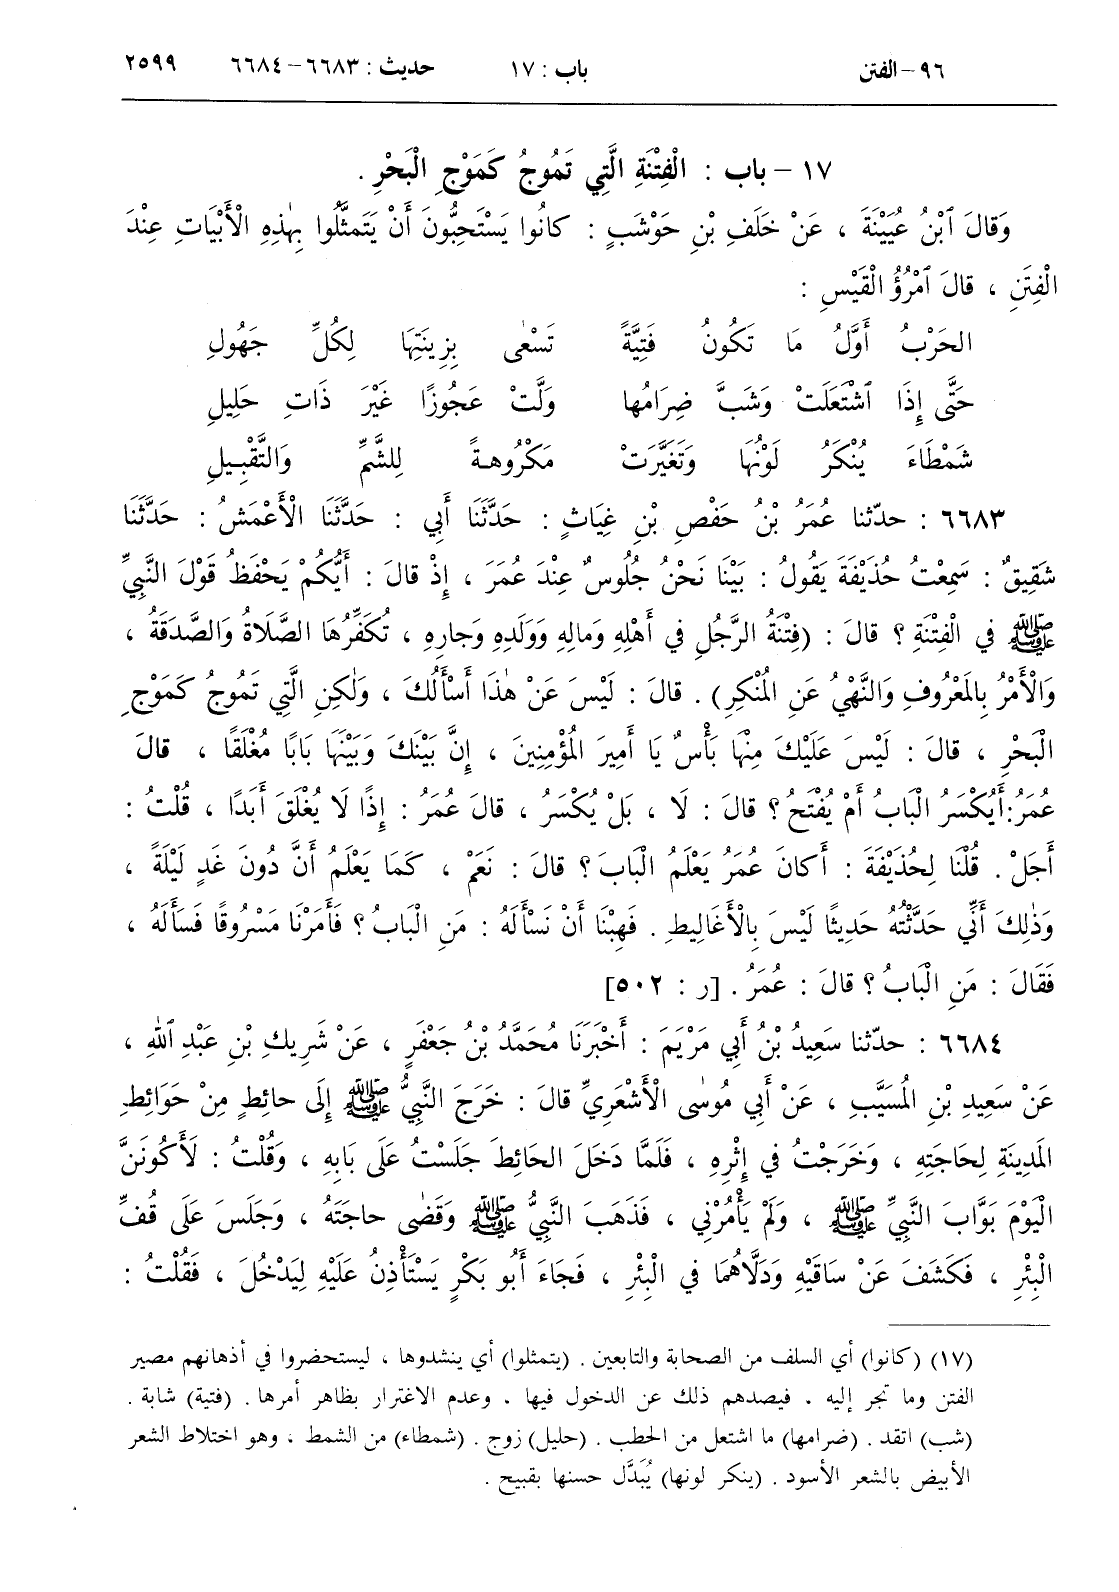 ٩٦ – الفتن باب : ١٧ حديث : ٦٦٨٣ – ٦٦٨٤ ٢٥٩٩
١٧ – باب : الْفِتْنَةِ الَّتِي تَمُوجُ كَمَوْجِ الْبَحْرِ .
وَقالَ ٱبْنُ عُيَيْنَةَ ، عَنْ خَلَفِ بْنِ حَوْشَبٍ : كانُوا يَسْتَحِبُّونَ أَنْ يَتَمثَّلُوا بِهٰذِهِ الْأَبْيَاتِ عِنْدَ
الْفِتَنِ ، قالَ ٱمْرُؤُ الْقَيْسِ :
الحَرْبُ أَوَّلُ مَا تَكُونُ فَتِيَّةً تَسْعٰى بِزِينَتِهَا لِكُلِّ جَهُولِ
حَتَّى إِذَا ٱشْتَعَلَتْ وَشَبَّ ضِرَامُها وَلَّتْ عَجُوزًا غَيْرَ ذَاتِ حَلِيلِ
شَمْطَاءَ يُنْكَرُ لَوْنُهَا وَتَغَيَّرَتْ مَكْرُوهةً لِلشَّمِّ وَالتَّقْبِيلِ
٦٦٨٣ : حدّثنا عُمَرُ بْنُ حَفْصِ بْنِ غِيَاثٍ : حَدَّثَنَا أَبِي : حَدَّثَنَا الْأَعْمَشُ : حَدَّثَنَا
شَقِيقٌ : سَمِعْتُ حُذَيْفَةَ يَقُولُ : بَيْنَا نَحْنُ جُلُوسٌ عِنْدَ عُمَرَ ، إِذْ قالَ : أَيُّكُمْ يَحْفَظُ قَوْلَ النَّبِيِّ
ﷺ في الْفِتْنَةِ ؟ قالَ : (فِتْنَةُ الرَّجُلِ في أَهْلِهِ وَمالِهِ وَوَلَدِهِ وَجارِهِ ، تُكَفِّرُهَا الصَّلَاةُ وَالصَّدَقَةُ ،
وَالْأَمْرُ بِالمَعْرُوفِ وَالنَّهْيُ عَنِ المُنْكَرِ) . قالَ : لَيْسَ عَنْ هٰذَا أَسْأَلُكَ ، وَلٰكِنِ الَّتِي تَمُوجُ كَمَوْجِ
الْبَحْرِ ، قالَ : لَيْسَ عَلَيْكَ مِنْهَا بَأْسٌ يَا أَمِيرَ المُؤْمِنِينَ ، إِنَّ بَيْنَكَ وَبَيْنَهَا بَابًا مُغْلَقًا ، قالَ
عُمَرُ:أَيُكْسَرُ الْبَابُ أَمْ يُفْتَحُ ؟ قالَ : لَا ، بَلْ يُكْسَرُ ، قالَ عُمَرُ : إِذًا لَا يُغْلَقَ أَبَدًا ، قُلْتُ :
أَجَلْ . قُلْنَا لِحُذَيْفَةَ : أَكانَ عُمَرُ يَعْلَمُ الْبَابَ ؟ قالَ : نَعَمْ ، كَمَا يَعْلَمُ أَنَّ دُونَ غَدٍ لَيْلَةً ،
وَذٰلِكَ أَنِّي حَدَّثْتُهُ حَدِيثًا لَيْسَ بِالْأَغالِيطِ . فَهِبْنَا أَنْ نَسْأَلَهُ : مَنِ الْبَابُ ؟ فَأَمَرْنَا مَسْرُوقًا فَسَأَلَهُ ،
فَقَالَ : مَنِ الْبَابُ ؟ قالَ : عُمَرُ . [ر : ٥٠٢]
٦٦٨٤ : حدّثنا سَعِيدُ بْنُ أَبِي مَرْيَمَ : أَخْبَرَنَا مُحَمَّدُ بْنُ جَعْفَرٍ ، عَنْ شَرِيكِ بْنِ عَبْدِ ٱللهِ ،
عَنْ سَعِيدِ بْنِ المُسَيَّبِ ، عَنْ أَبِي مُوسٰى الْأَشْعَرِيِّ قالَ : خَرَجَ النَّبِيُّ ﷺ إِلَى حائِطٍ مِنْ حَوَائِطِ
المَدِينَةِ لِحَاجَتِهِ ، وَخَرَجْتُ في إِثْرِهِ ، فَلَمَّا دَخَلَ الحَائِطَ جَلَسْتُ عَلَى بَابِهِ ، وَقُلْتُ : لَأَكُونَنَّ
الْيَوْمَ بَوَّابَ النَّبِيِّ ﷺ ، وَلَمْ يَأْمُرْنِي ، فَذَهَبَ النَّبِيُّ ﷺ وَقَضٰى حاجَتَهُ ، وَجَلَسَ عَلَى قُفِّ
الْبِئْرِ ، فَكَشَفَ عَنْ سَاقَيْهِ وَدَلَّاهُمَا في الْبِئْرِ ، فَجَاءَ أَبُو بَكْرٍ يَسْتَأْذِنُ عَلَيْهِ لِيَدْخُلَ ، فَقُلْتُ :
(١٧) (كانوا) أي السلف من الصحابة والتابعين . (يتمثلوا) أي ينشدوها ، ليستحضروا في أذهانهم مصير
الفتن وما تجر إليه ، فيصدهم ذلك عن الدخول فيها ، وعدم الاغترار بظاهر أمرها . (فتية) شابة .
(شب) اتقد . (ضرامها) ما اشتعل من الحطب . (حليل) زوج . (شمطاء) من الشمط ، وهو اختلاط الشعر
الأبيض بالشعر الأسود . (ينكر لونها) يُبَدَّل حسنها بقبيح .